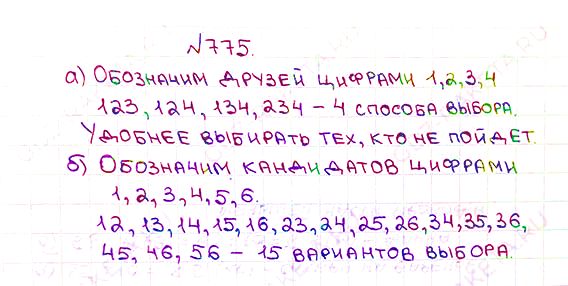 №775.
а) Обозначим друзей цифрами 1,2,3,4
123, 124, 134, 234 – 4 способа выбора.
Удобнее выбирать тех, кто не пойдет.
б) Обозначим кандидатов цифрами
1, 2, 3, 4, 5, 6.
12, 13, 14, 15, 16, 23, 24, 25, 26, 34, 35, 36,
45, 46, 56 – 15 вариантов выбора.